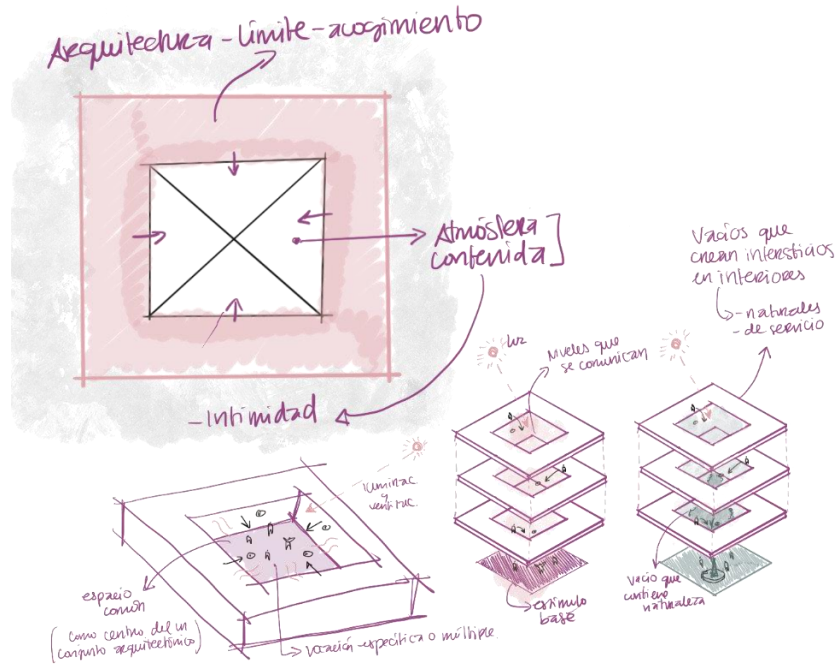 Arquitectura - Límite - acogimiento
Atmósfera
contenida
- Intimidad
Vacíos que
crean intersticios
en interiores
- naturales
- de servicio
luz
Niveles que
se comunican
iluminac.
y
ventilac.
espacio
común
(como centro de un
conjunto arquitectónico)
vocación específica o múltiple.
estímulo
base
vacío que
contiene
naturaleza